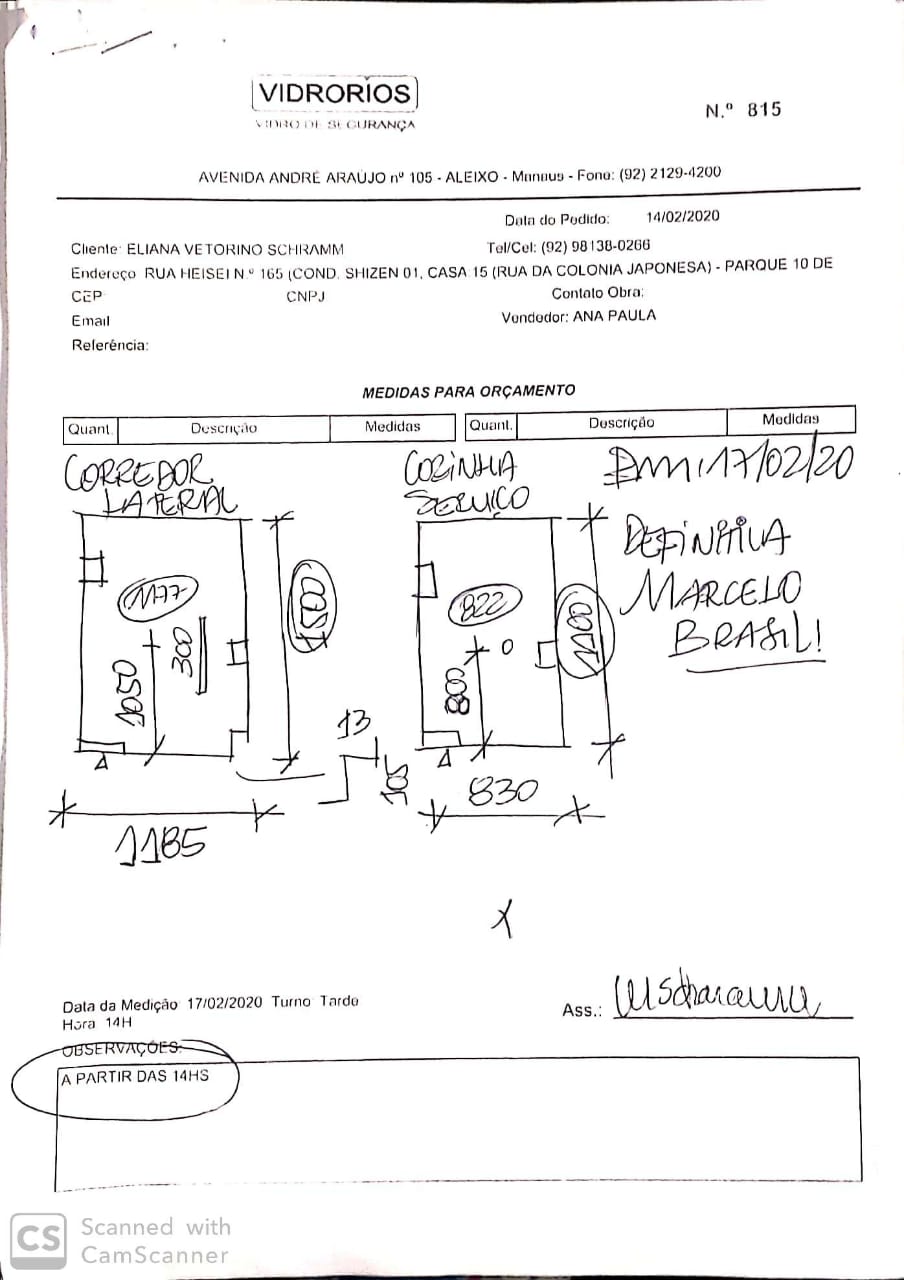 VIDRORIOS
VIDRO DE SEGURANÇA
N.º 815
AVENIDA ANDRÉ ARAÚJO nº 105 - ALEIXO - Manaus - Fone: (92) 2129-4200
Data do Pedido: 14/02/2020
Cliente: ELIANA VETORINO SCHRAMM Tel/Cel: (92) 98138-0266
Endereço RUA HEISEI N.º 165 (COND. SHIZEN 01, CASA 15 (RUA DA COLONIA JAPONESA) - PARQUE 10 DE
CEP CNPJ Contato Obra:
Email Vendedor: ANA PAULA
Referência:
MEDIDAS PARA ORÇAMENTO
Quant. Descrição Medidas Quant. Descrição Medidas
CORREDOR LATERAL
COZINHA SERVIÇO
EM:17/02/20
DEFINITIVA
MARCELO
BRASIL!
1177
300
1050
1185
13
105
822
800
830
Data da Medição 17/02/2020 Turno Tarde
Hora 14H
Ass.:
OBSERVAÇÕES:
A PARTIR DAS 14HS
CS Scanned with
CamScanner